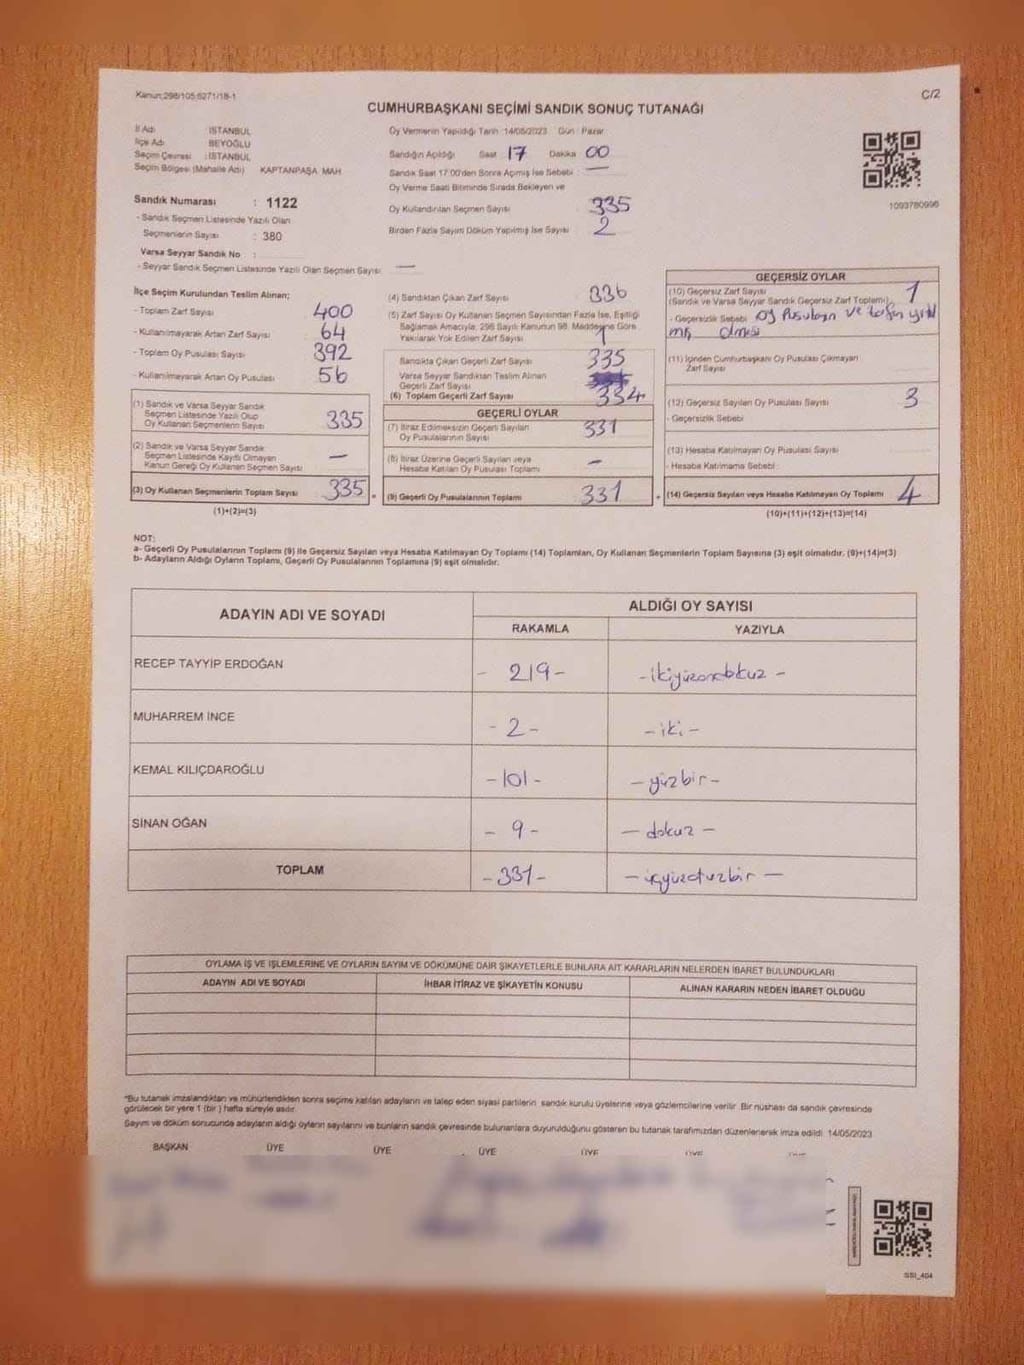 Kanun;298/105;6271/18-1
C/2
CUMHURBAŞKANI SEÇİMİ SANDIK SONUÇ TUTANAĞI
İl Adı İSTANBUL
İlçe Adı BEYOĞLU
Seçim Çevresi : İSTANBUL
Seçim Bölgesi (Mahalle Adı) KAPTANPAŞA MAH
Sandık Numarası : 1122
- Sandık Seçmen Listesinde Yazılı Olan
Seçmenlerin Sayısı : 380
Varsa Seyyar Sandık No :
- Seyyar Sandık Seçmen Listesinde Yazılı Olan Seçmen Sayısı —
Oy Vermenin Yapıldığı Tarih :14/05/2023 Gün : Pazar
Sandığın Açıldığı Saat 17 Dakika 00
Sandık Saat 17.00'den Sonra Açılmış İse Sebebi : —
Oy Verme Saati Bitiminde Sırada Bekleyen ve
Oy Kullandırılan Seçmen Sayısı 335
Birden Fazla Sayım Döküm Yapılmış İse Sayısı 2
1093780996
İlçe Seçim Kurulundan Teslim Alınan;
- Toplam Zarf Sayısı 400
- Kullanılmayarak Artan Zarf Sayısı 64
- Toplam Oy Pusulası Sayısı 392
- Kullanılmayarak Artan Oy Pusulası 56
(1) Sandık ve Varsa Seyyar Sandık
Seçmen Listesinde Yazılı Olup
Oy Kullanan Seçmenlerin Sayısı 335
(2) Sandık ve Varsa Seyyar Sandık
Seçmen Listesinde Kayıtlı Olmayan
Kanun Gereği Oy Kullanan Seçmen Sayısı —
(3) Oy Kullanan Seçmenlerin Toplam Sayısı 335 =
(1)+(2)=(3)
(4) Sandıktan Çıkan Zarf Sayısı 336
(5) Zarf Sayısı Oy Kullanan Seçmen Sayısından Fazla İse, Eşitliği
Sağlamak Amacıyla, 298 Sayılı Kanunun 98. Maddesine Göre
Yakılarak Yok Edilen Zarf Sayısı 1
Sandıkta Çıkan Geçerli Zarf Sayısı 335
Varsa Seyyar Sandıktan Teslim Alınan
Geçerli Zarf Sayısı
(6) Toplam Geçerli Zarf Sayısı 334
GEÇERLİ OYLAR
(7) İtiraz Edilmeksizin Geçerli Sayılan
Oy Pusulalarının Sayısı 331
(8) İtiraz Üzerine Geçerli Sayılan veya
Hesaba Katılan Oy Pusulası Toplamı —
(9) Geçerli Oy Pusulalarının Toplamı 331 +
GEÇERSİZ OYLAR
(10) Geçersiz Zarf Sayısı
(Sandık ve Varsa Seyyar Sandık Geçersiz Zarf Toplamı) 1
- Geçersizlik Sebebi Oy Pusulasın ve
mış olması
(11) İçinden Cumhurbaşkanı Oy Pusulası Çıkmayan
Zarf Sayısı
(12) Geçersiz Sayılan Oy Pusulası Sayısı 3
- Geçersizlik Sebebi
(13) Hesaba Katılmayan Oy Pusulası Sayısı
- Hesaba Katılmama Sebebi
(14) Geçersiz Sayılan veya Hesaba Katılmayan Oy Toplamı 4
(10)+(11)+(12)+(13)=(14)
NOT:
a- Geçerli Oy Pusulalarının Toplamı (9) ile Geçersiz Sayılan veya Hesaba Katılmayan Oy Toplamı (14) Toplamları, Oy Kullanan Seçmenlerin Toplam Sayısına (3) eşit olmalıdır. (9)+(14)=(3)
b- Adayların Aldığı Oyların Toplamı, Geçerli Oy Pusulalarının Toplamına (9) eşit olmalıdır.
ADAYIN ADI VE SOYADI ALDIĞI OY SAYISI
RAKAMLA YAZIYLA
RECEP TAYYİP ERDOĞAN - 219 - - ikiyüzondokuz -
MUHARREM İNCE - 2 - - iki -
KEMAL KILIÇDAROĞLU - 101 - - yüzbir -
SİNAN OĞAN - 9 - - dokuz -
TOPLAM - 331 - - üçyüzotuzbir -
OYLAMA İŞ VE İŞLEMLERİNE VE OYLARIN SAYIM VE DÖKÜMÜNE DAİR ŞİKAYETLERLE BUNLARA AİT KARARLARIN NELERDEN İBARET BULUNDUKLARI
ADAYIN ADI VE SOYADI İHBAR İTİRAZ VE ŞİKAYETİN KONUSU ALINAN KARARIN NEDEN İBARET OLDUĞU
*Bu tutanak imzalandıktan ve mühürlendikten sonra seçime katılan adayların ve talep eden siyasi partilerin sandık kurulu üyelerine veya gözlemcilerine verilir. Bir nüshası da sandık çevresinde
görülecek bir yere 1 (bir ) hafta süreyle asılır.
Sayım ve döküm sonucunda adayların aldığı oyların sayılarını ve bunların sandık çevresinde bulunanlara duyurulduğunu gösteren bu tutanak tarafımızdan düzenlenerek imza edildi. 14/05/2023
BAŞKAN ÜYE ÜYE ÜYE ÜYE ÜYE
SSI_404